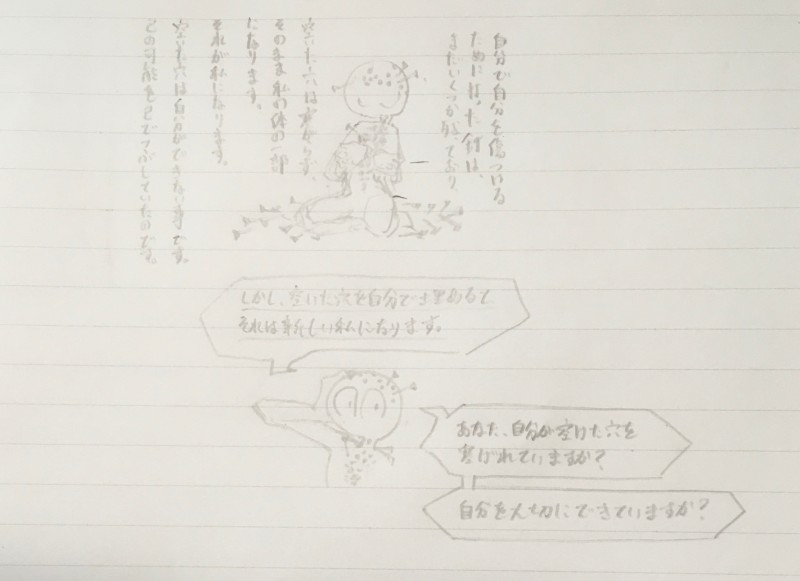 自分で自分を傷つける
ためにはった針は、
まだいくつか残っており、
空いた穴は塞がらず、
そのまま私の体の一部
になります。
それが私になります。
空いた穴は自分ができない事です。
己の可能を己でつぶしていたのです。
しかし、空いた穴を自分で埋めると
それは新しい私になります。
あなた、自分が空けた穴を
塞げれていますか?
自分を大切にできていますか?